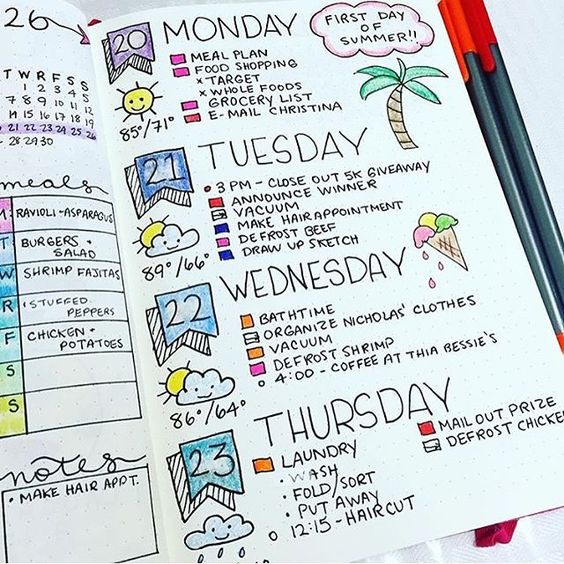 26
T W R F S S
1 2 3 4 5
7 8 9 10 11 12
14 15 16 17 18 19
21 22 23 24 25 26
28 29 30
meals
M: RAVIOLI-ASPARAGUS
T BURGERS + SALAD
W SHRIMP FAJITAS
R STUFFED PEPPERS
F CHICKEN + POTATOES
S
S
notes
• MAKE HAIR APPT.
20
MONDAY
FIRST DAY
OF
SUMMER!!
85°/71°
MEAL PLAN
FOOD SHOPPING
x TARGET
x WHOLE FOODS
GROCERY LIST
E-MAIL CHRISTINA
21
TUESDAY
89°/66°
3 PM - CLOSE OUT 5K GIVEAWAY
ANNOUNCE WINNER
VACUUM
MAKE HAIR APPOINTMENT
DEFROST BEEF
DRAW UP SKETCH
22
WEDNESDAY
86°/64°
BATHTIME
ORGANIZE NICHOLAS' CLOTHES
VACUUM
DEFROST SHRIMP
4:00 - COFFEE AT THIA BESSIE'S
23
THURSDAY
LAUNDRY
• WASH
• FOLD/SORT
• PUT AWAY
12:15 - HAIRCUT
MAIL OUT PRIZE
DEFROST CHICKE